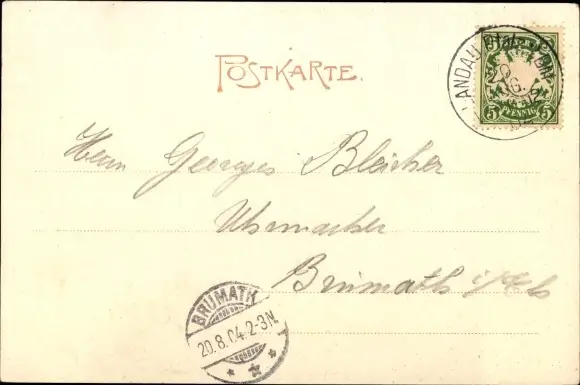 POSTKARTE.
LANDAU Pfalz
20
5 PFENNIG 5
Herrn Georges Bleicher
Uhrmacher
Brumath i/Els
BRUMATH
20.8.04.2-3N.